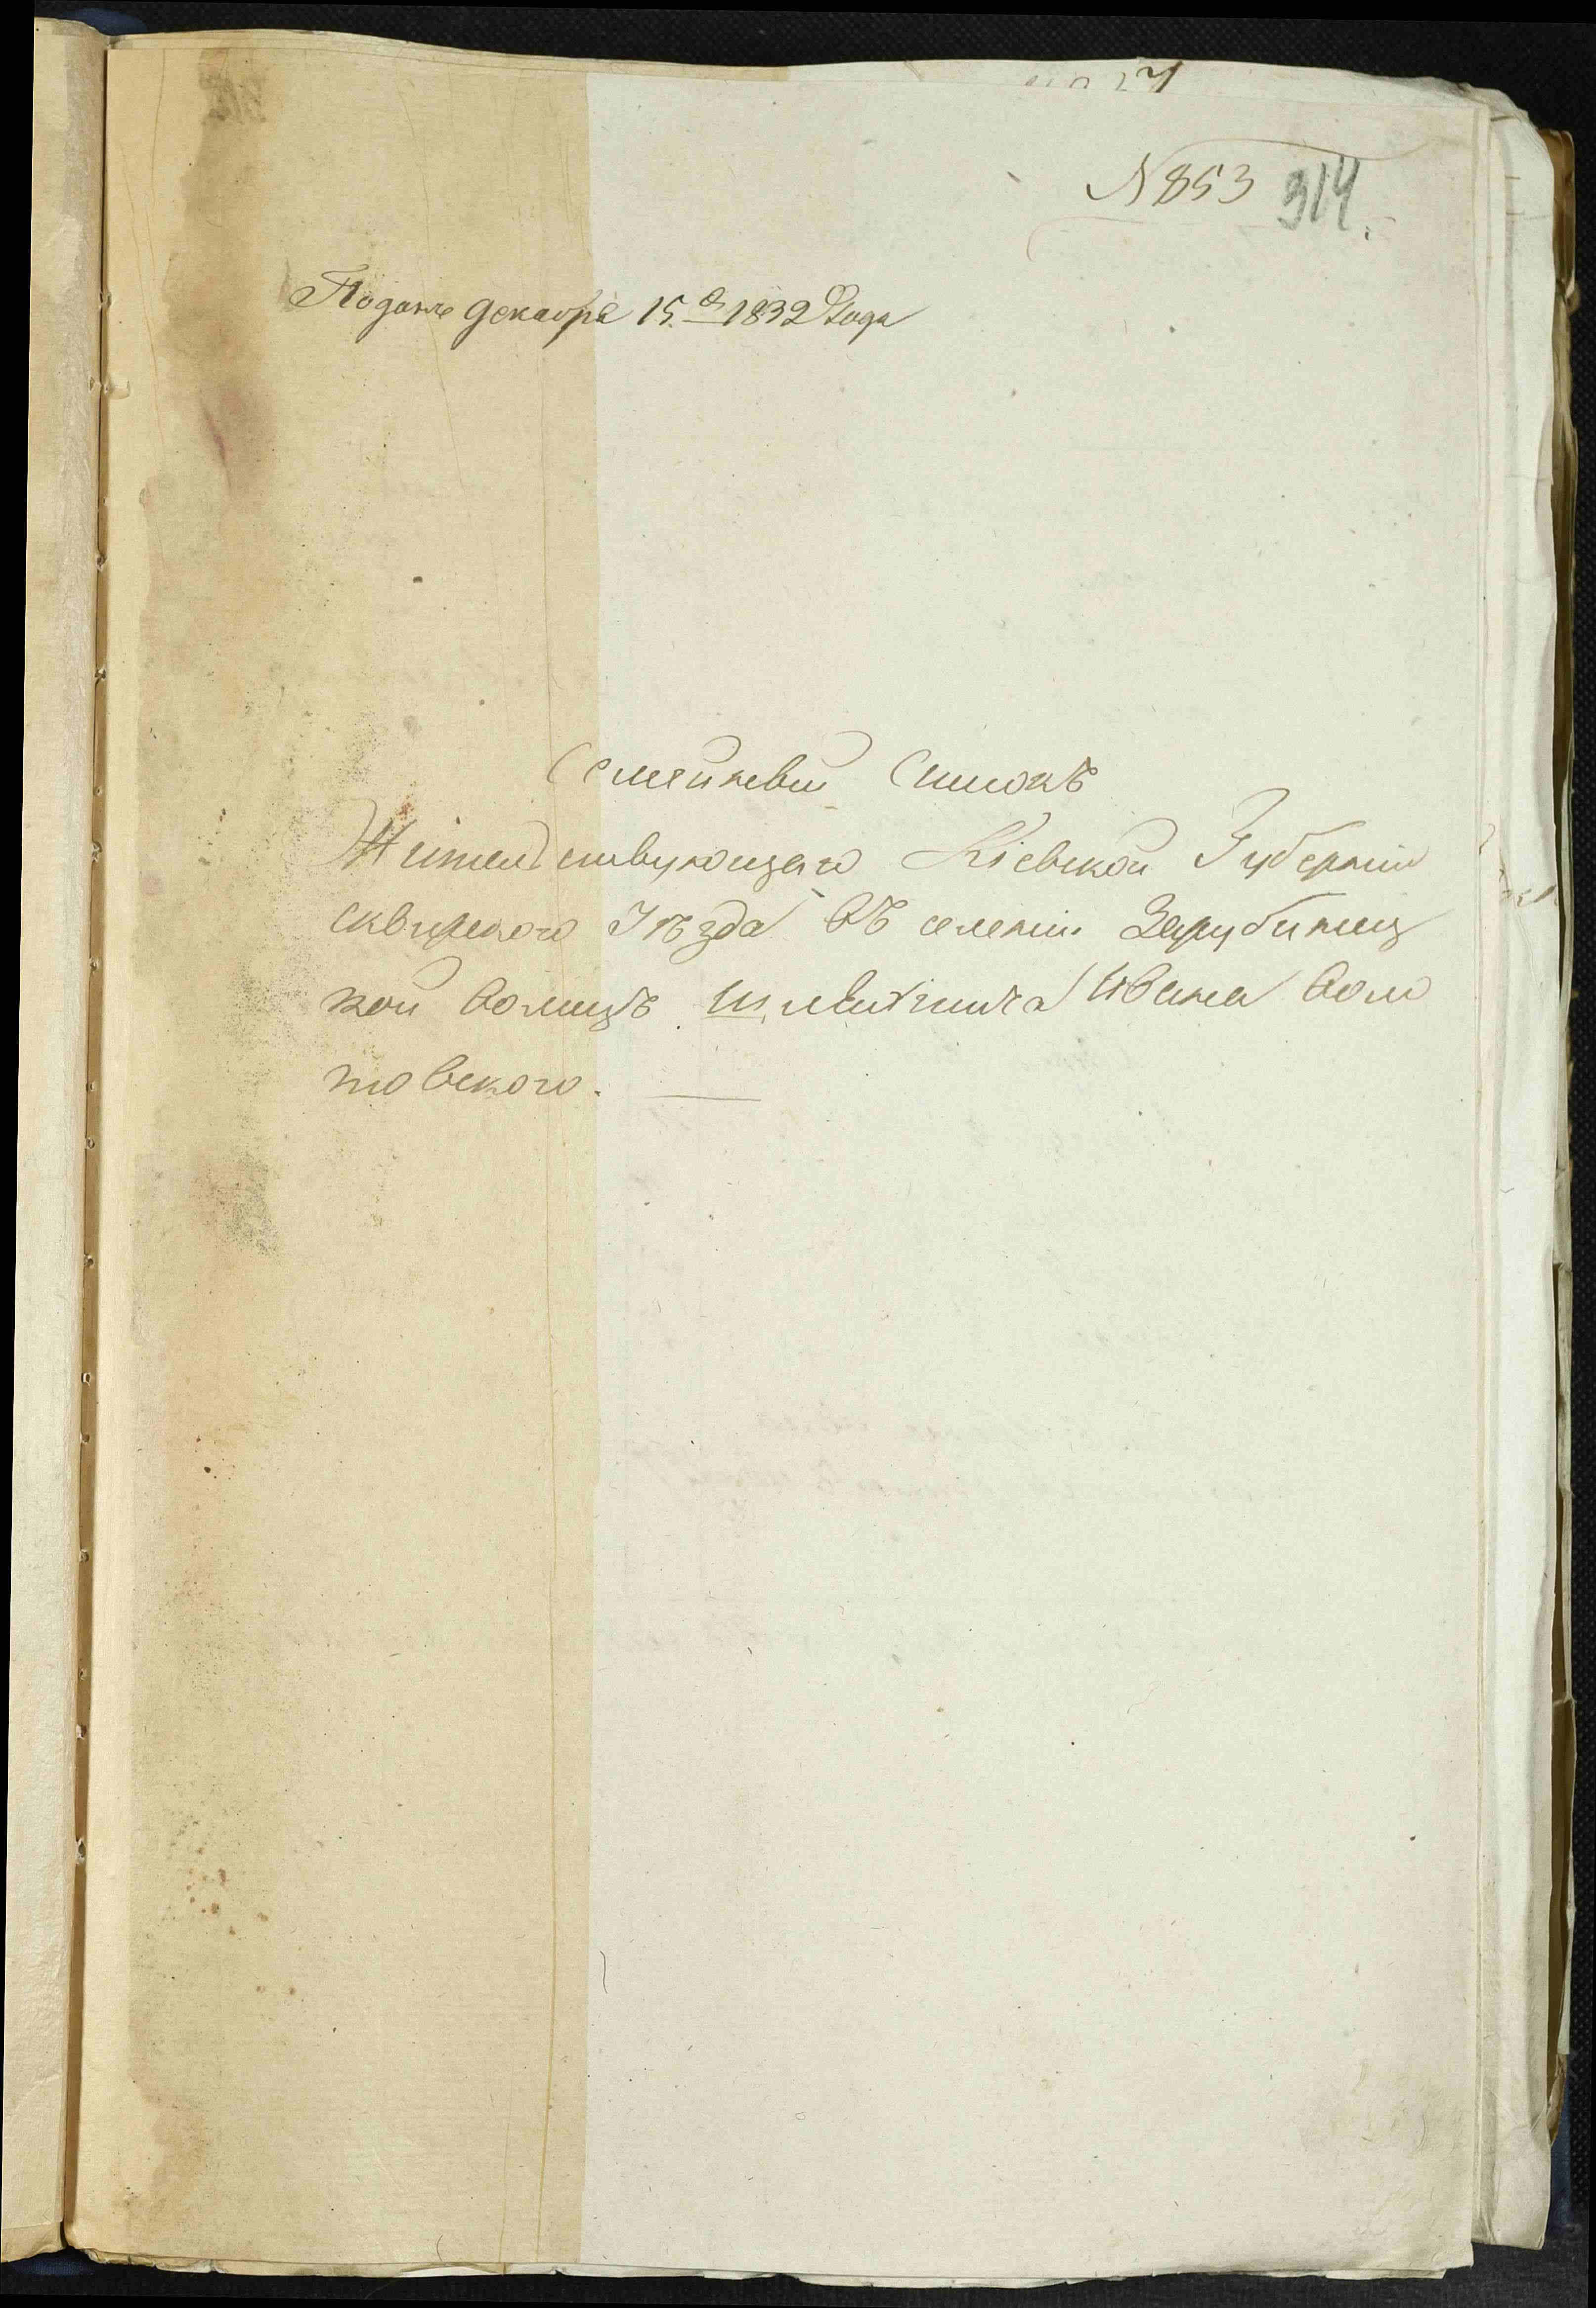 N 853 314.
Поданъ декабра 15 д 1832 Года
Семейневи Списокъ
Жительствующаго Кіевской Губерніи
сквирского Уѣзда въ селеніи Зарубинец
кой волицѣ шляхтича Ивана Воло
товского.